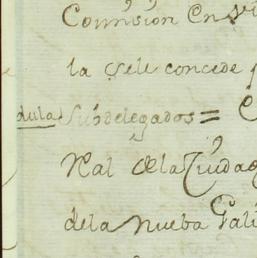 Comision en Vi
la se le concede
dula Subdelegados =
Real de la Ciudad
de la nueba Gali